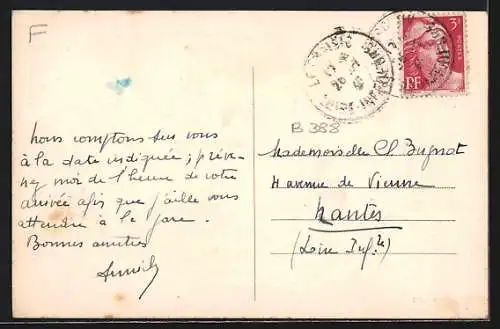 F
3F
RF
LE CROISIC
LOIRE-INFRE
B 388
Nous comptons sur vous
à la date indiquée ; préve-
nez moi de l'heure de votre
arrivée afin que j'aille vous
attendre à la gare.
Bonnes amitiés
Mademoiselle Ch.
4 avenue de Vienne
Nantes
(Loire Infre)